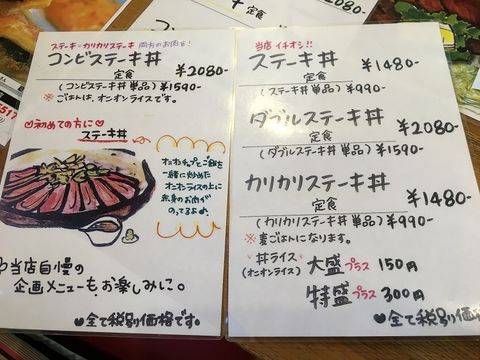 ステーキ・カリカリステーキ 両方のお肉を!
コンビステーキ丼
定食 ¥2080-
(コンビステーキ丼 単品) ¥1590-
※ごはんは、オニオンライスです。
初めての方に
ステーキ丼
オニオンチップとご飯を
一緒に炒めた
オニオンライスの上に
赤身のお肉が
のってるよ♪
当店自慢の
企画メニューも、お楽しみに。
全て税別価格です。
当店イチオシ!!
ステーキ丼
定食 ¥1480-
(ステーキ丼 単品) ¥990-
ダブルステーキ丼
定食 ¥2080-
(ダブルステーキ丼 単品) ¥1590-
カリカリステーキ丼
定食 ¥1480-
(カリカリステーキ丼 単品) ¥990-
※麦ごはんになります。
丼ライス 大盛 プラス 150円
(オニオンライス)
特盛 プラス 300円
全て税別価格
定食